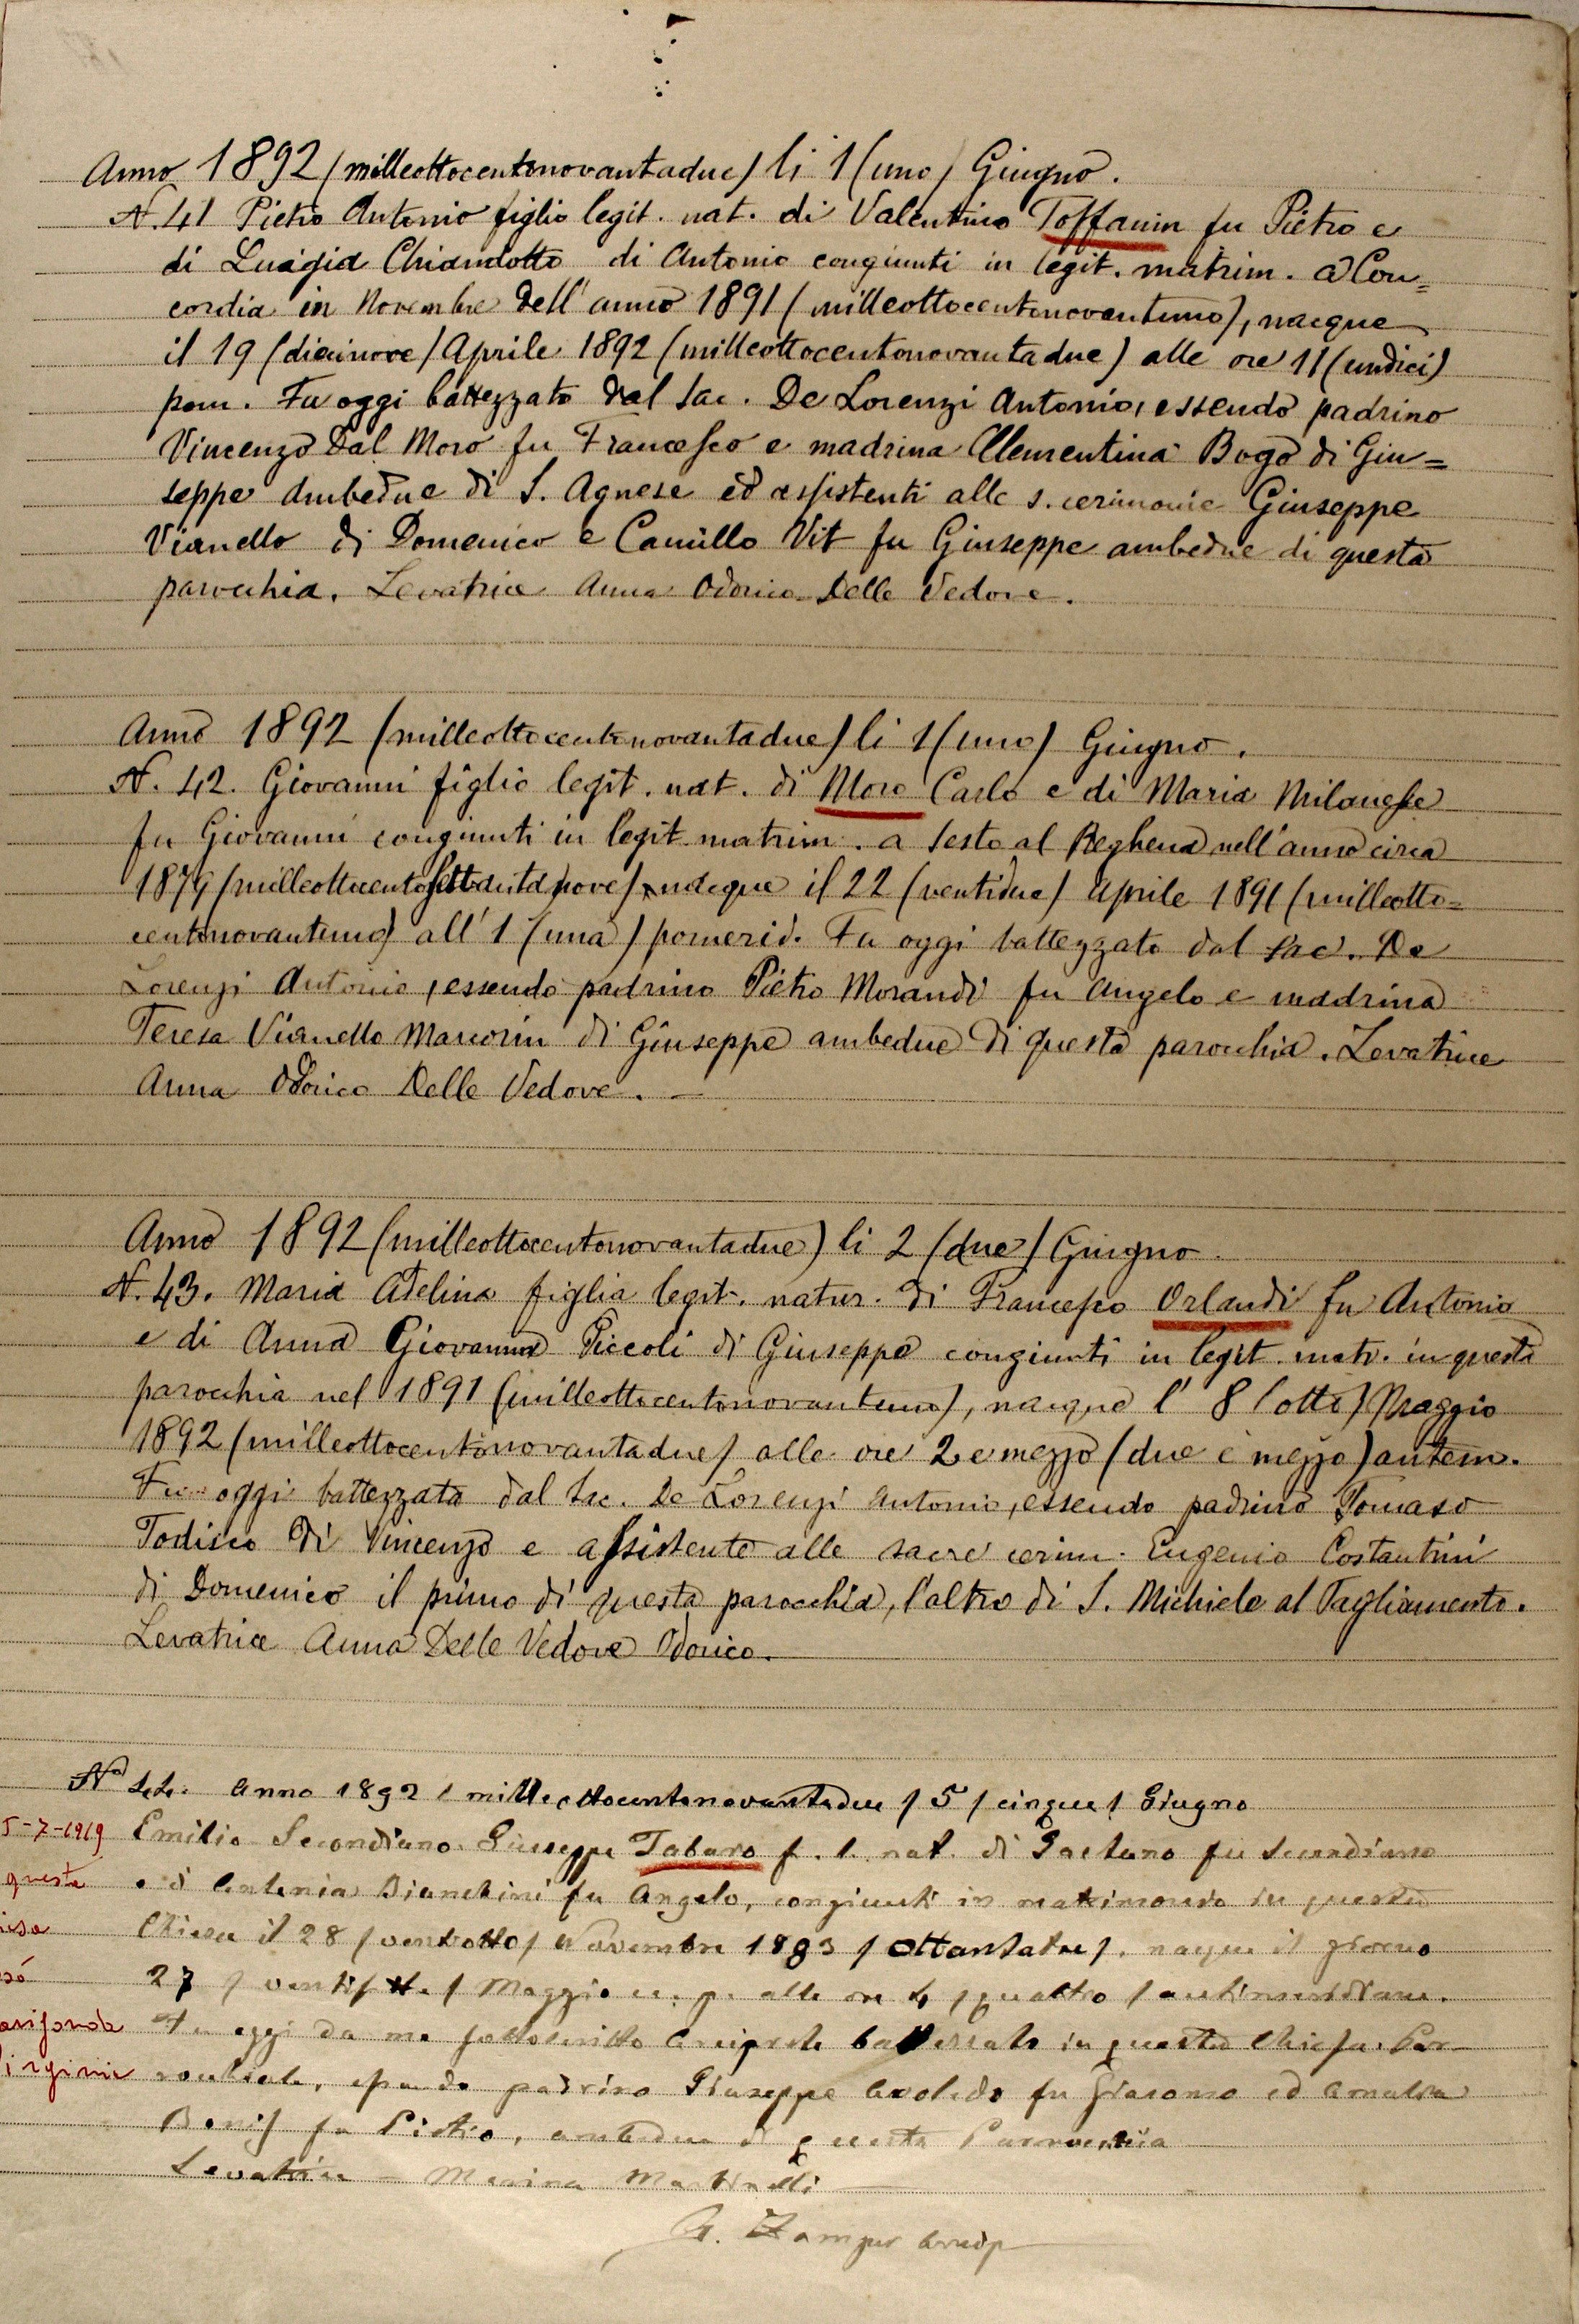 Anno 1892 (milleottocentonovantadue) li 1 (uno) Giugno.
N. 41 Pietro Antonio figlio legit. nat. di Valentino Toffanin fu Pietro e
di Luigia Chiandotto di Antonio congiunti in legit. matrim. a Con=
cordia in Novembre dell'anno 1891 (milleottocentonovantuno), nacque
il 19 (dicinove) Aprile 1892 (milleottocentonovantadue) alle ore 11 (undici)
pom. Fu oggi battezzato dal Sac. De Lorenzi Antonio, essendo padrino
Vincenzo Dal Moro fu Francesco e madrina Clementina Bogo di Giu=
seppe ambedue di S. Agnese ed assistenti alle s. cerimonie Giuseppe
Vianello di Domenico e Camillo Vit fu Giuseppe ambedue di questa
parocchia. Levatrice Anna Odorico Delle Vedove.
Anno 1892 (milleottocentonovantadue) li 1 (uno) Giugno.
N. 42. Giovanni figlio legit. nat. di Moro Carlo e di Maria Milanese
fu Giovanni congiunti in legit. matrim. a Sesto al Reghena nell'anno circa
1879 (milleottocentosettantanove) nacque il 22 (ventidue) Aprile 1891 (milleotto=
centonovantuno) all'1 (una) pomerid. Fu oggi battezzato dal Sac. De
Lorenzi Antonio, essendo padrino Pietro Morandi fu Angelo e madrina
Teresa Vianello Marcorin di Giuseppe ambedue di questa parocchia. Levatrice
Anna Odorico Delle Vedove. —
Anno 1892 (milleottocentonovantadue) li 2 (due) Giugno.
N. 43. Maria Adelina figlia legit. natur. di Francesco Orlandi fu Antonio
e di Anna Giovanna Piccoli di Giuseppe congiunti in legit. matr. in questa
parocchia nel 1891 (milleottocentonovantuno), nacque l'8 (otto) Maggio
1892 (milleottocentonovantadue) alle ore 2 e mezzo (due e mezzo) antem.
Fu oggi battezzata dal Sac. De Lorenzi Antonio, essendo padrino Tomaso
Todisco di Vincenzo e assistente alle sacre cerim. Eugenio Costantini
di Domenico il primo di questa parocchia, l'altro di S. Michiele al Tagliamento.
Levatrice Anna Delle Vedove Odorico.
No 44. Anno 1892 (milleottocentonovantadue) 5 (cinque) Giugno
Emilio Secondiano Giuseppe Tabaro f. l. nat. di Gaetano fu Secondiano
e di Antonia Bianchini fu Angelo, congiunti in matrimonio in questa
Chiesa il 28 (ventotto) Novembre 1883 (ottantatre), nacque il giorno
27 (ventisette) Maggio u. p. alle ore 4 (quattro) antimeridiane.
Fu oggi da me sottoscritto Arciprete battezzato in questa Chiesa Par-
rochiale, essendo padrino Giuseppe Avoledo fu Giacomo ed Amalia
fu Pietro, ambedue di questa Parrocchia
Levatrice – Marina Martinelli
5-7-1919
questa